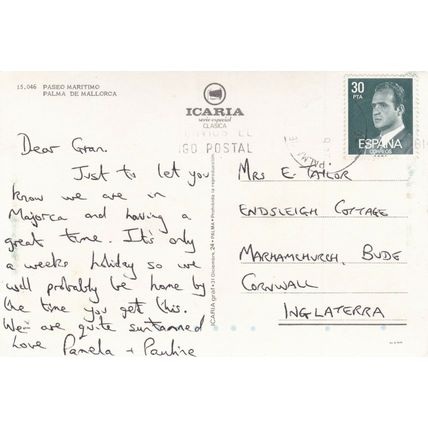 15.046 PASEO MARITIMO
PALMA DE MALLORCA
ICARIA
serie especial
CLASICA
30
PTA
ESPAÑA
CORREOS
GO POSTAL
Dear Gran.
Just to let you
know we are in
Majorca and having a
great time. It's only
a weeks holiday so we
will probably be home by
the time you get this.
We are quite suntanned
Love Pamela + Pauline
ICARIA graf • 31 Diciembre 24 • PALMA • Prohibida la reproducción
MRS E. TAYLOR
ENDSLEIGH COTTAGE
MARHAMCHURCH, BUDE
CORNWALL
INGLATERRA